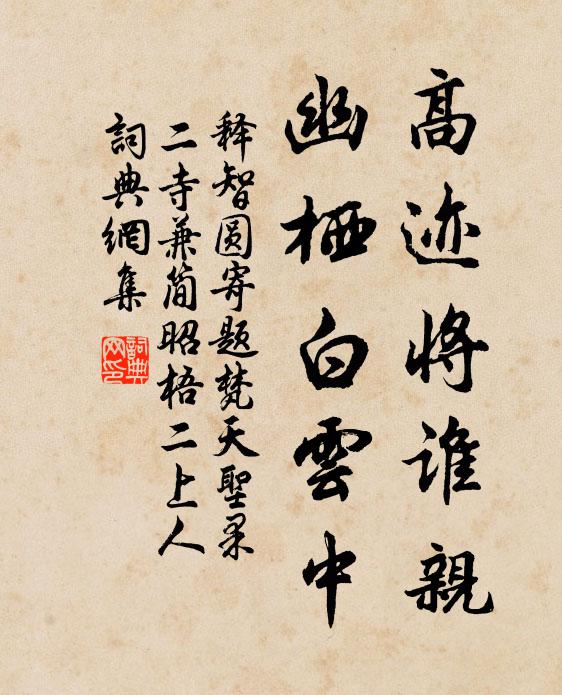 高迹将谁親
幽栖白雲中
释智圆寄题梵天聖果
二寺兼简昭梧二上人
詞典網集
詞典网印